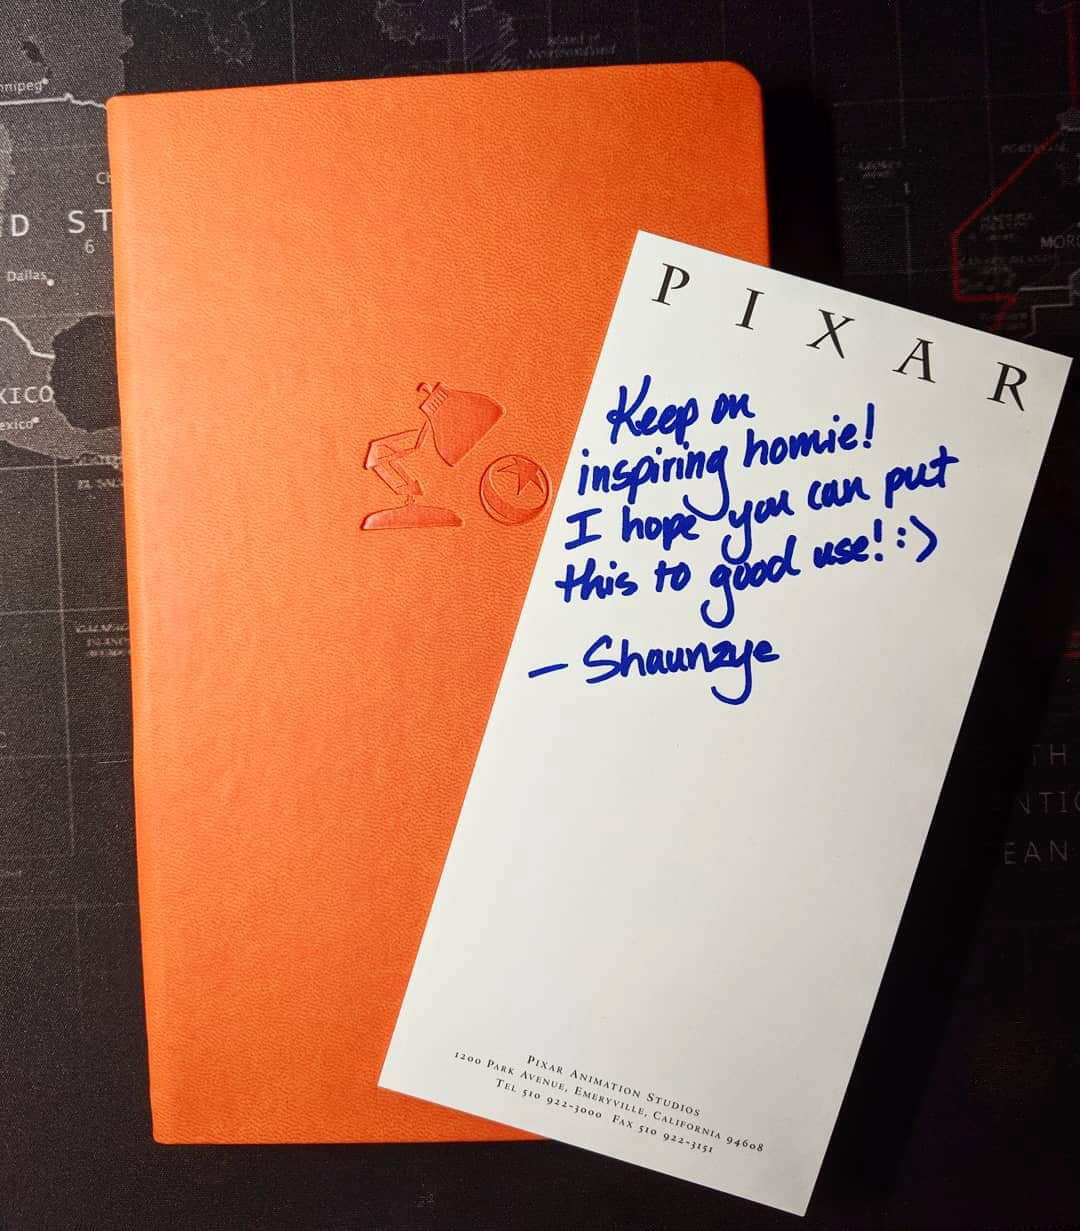 nnipeg
Island of
Newfoundland
D ST
6
Dallas
XICO
exico
EL SAL
MOR
P I X A R
Keep on
inspiring homie!
I hope you can put
this to good use! :)
— Shaunzye
TH
NTIC
EAN
PIXAR ANIMATION STUDIOS
1200 PARK AVENUE, EMERYVILLE, CALIFORNIA 94608
TEL 510 922-3000 FAX 510 922-3151